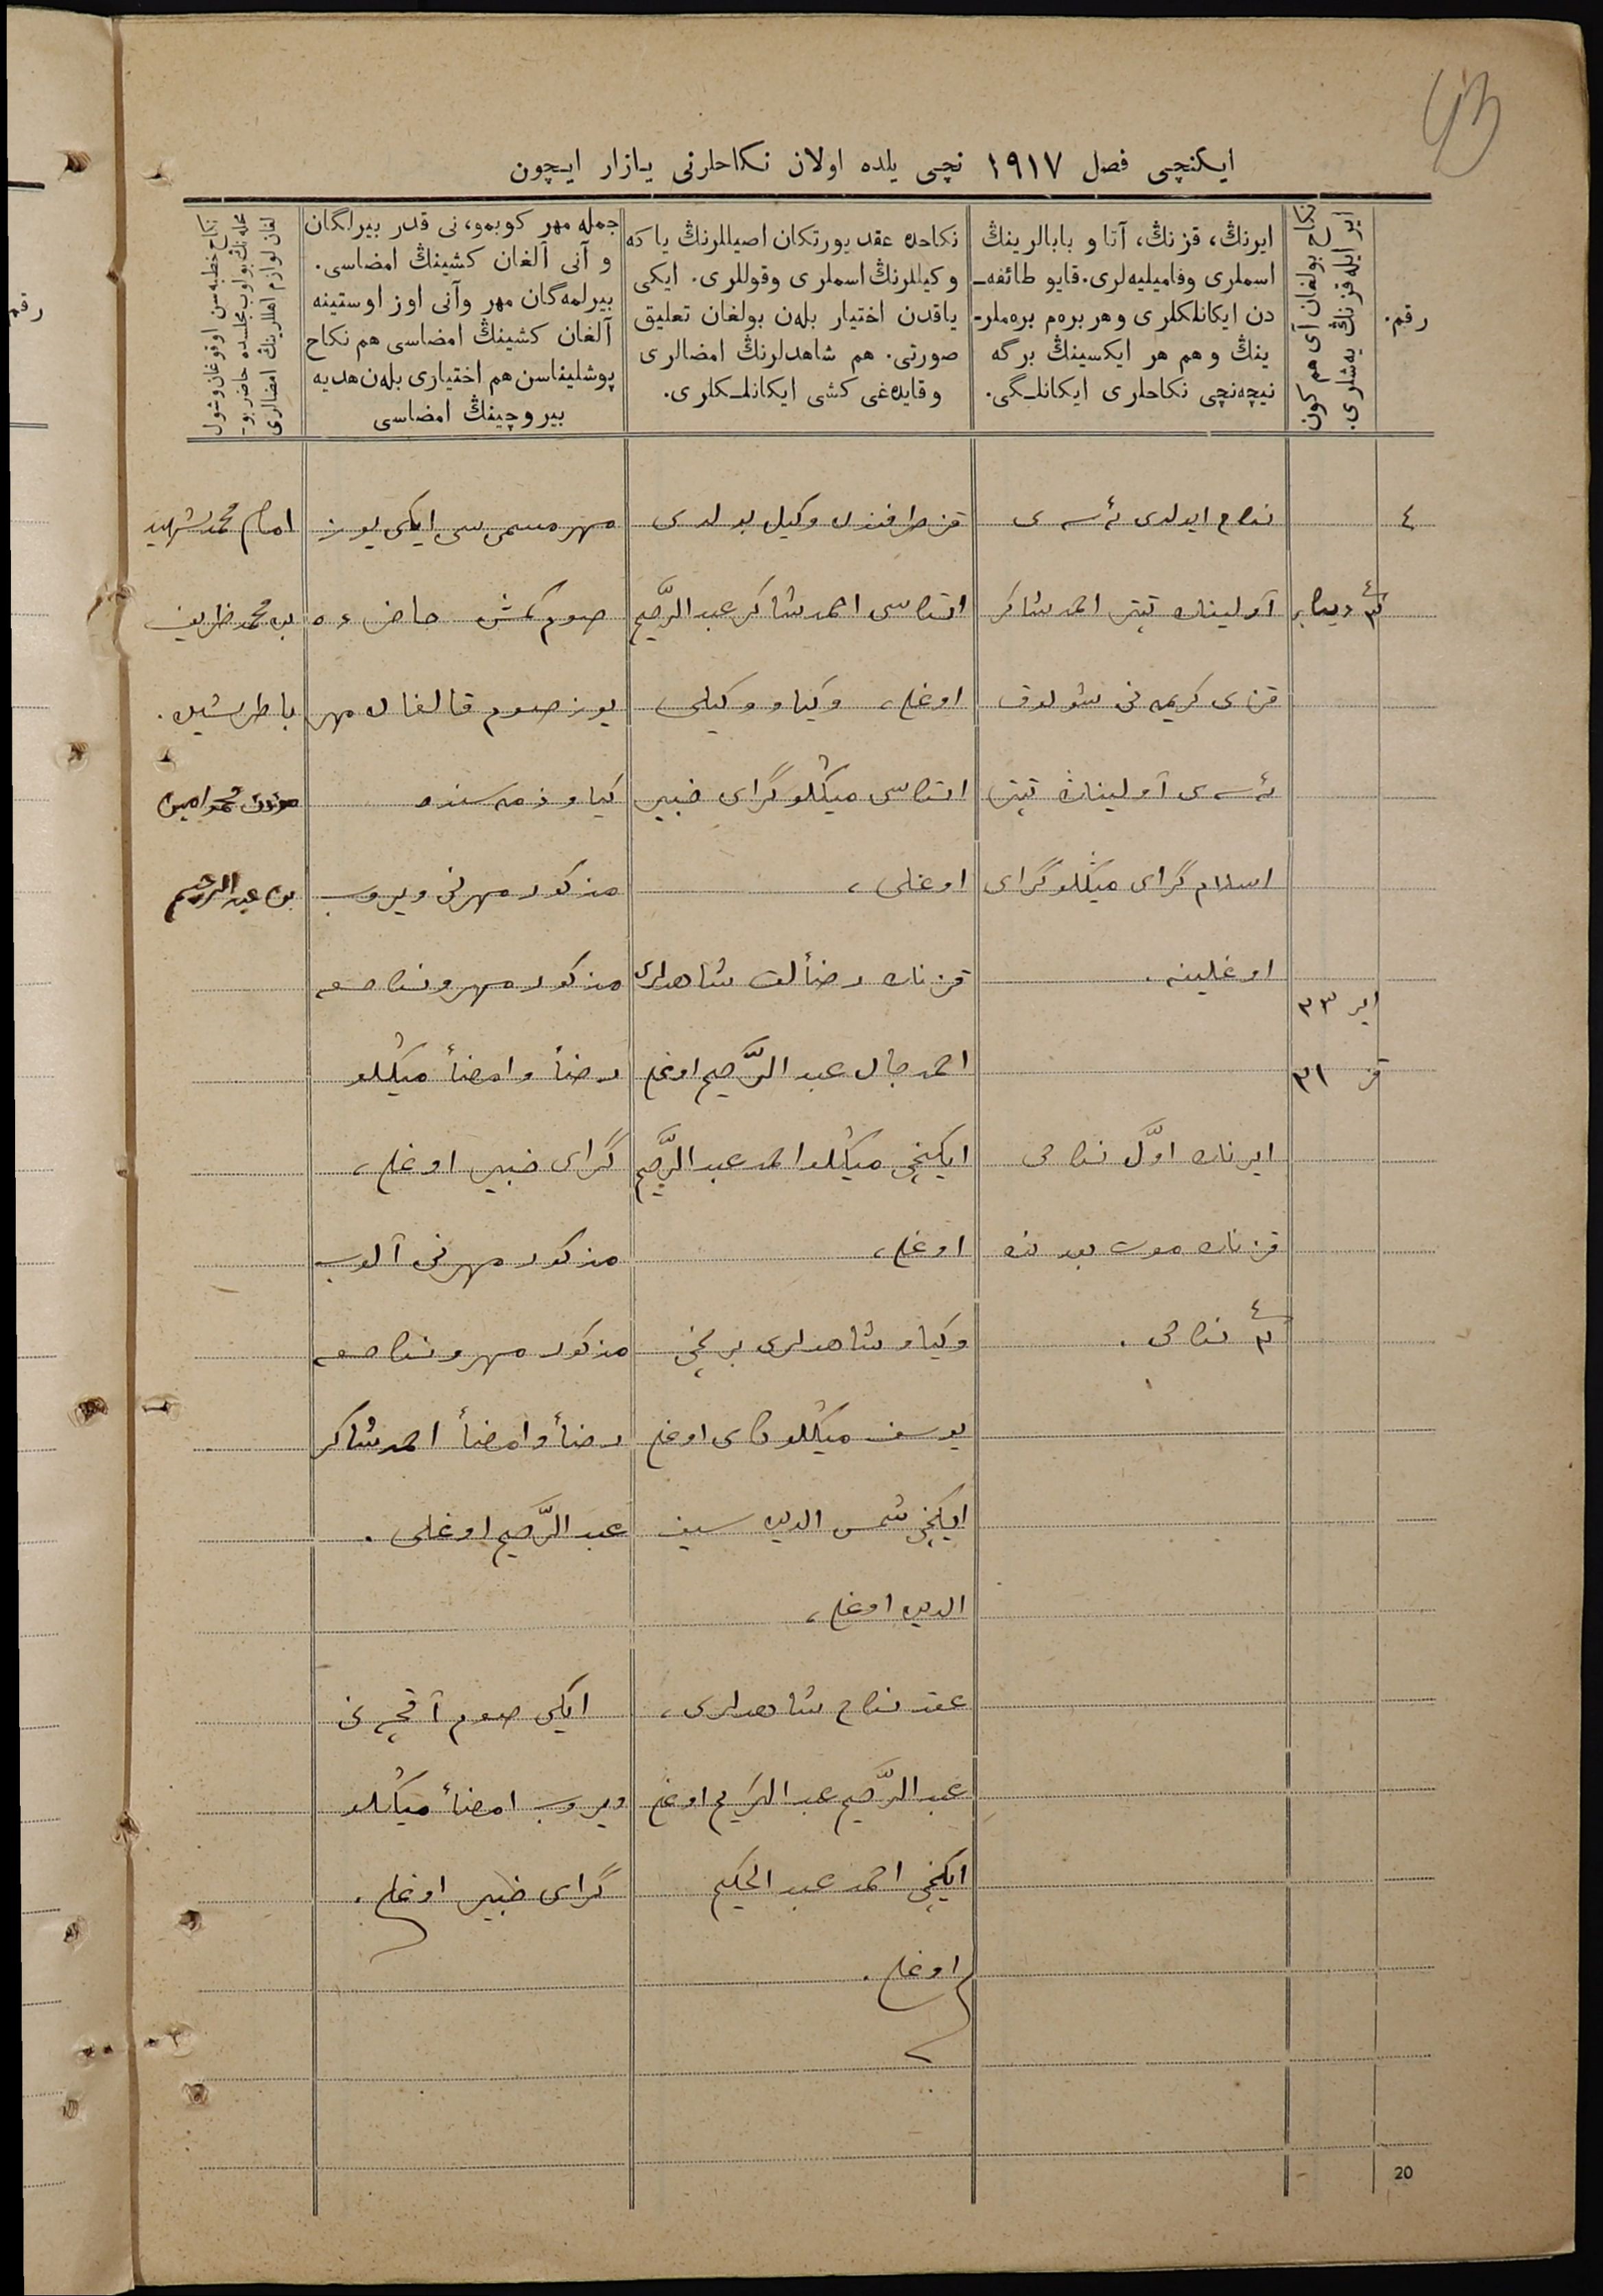 43
ایکنچی فصل ١٩١٧ نچی یلده اولان نکاحلرنی یازار ایچون
رقم.
نکاح بولغان آی هم کون
ایر ایله قزنڭ یه‌شلری.
ایرنڭ، قزنڭ، آتا و بابالرینڭ
اسملری وفامیلیه‌لری. قایو طائفه‌ـ
دن ایکانلکلری و هر بره‌م بره‌ملرـ
ینڭ و هم هر ایکسینڭ برگه
نیچه‌نچی نکاحلری ایکانلـگی.
نکاحده عقد یورتکان اصیللرنڭ یا که
وکیللرنڭ اسملری وقوللری. ایکی
یاقدن اختیار بلەن بولغان تعلیق
صورتی. هم شاهدلرنڭ امضالری
وقایده‌غی کشی ایکانلـکلری.
جمله مهر کوبمو، نی قدر بیرلگان
و آنی آلغان کشینڭ امضاسی.
بیرلمه‌گان مهر وآنی اوز اوستینه
آلغان کشینڭ امضاسی هم نکاح
پوشلیناسن هم اختیاری بلەن هدیه
بیروچینڭ امضاسی
نکاح خطبه‌سن اوقوغان وشول
محله‌نڭ بولوب مجلسده حاضر بوـ
لغان لوازم اهللرینڭ امضالری
٤
٤ دیکابر
ایر ٣٣
قز ٣١
نکاح ایدلدی
آولیناڭ تپتر احمدشاکر
قزی کریمه نی شولوق
آولیناڭ تپتر
اسلام گرای میڭلوگرای
اوغلینه.
ایرناڭ اوّل نکاحی
قزناڭ موت بعدنده
نکاحی.
قز طرفندن وکیل بولدی
اتاسی احمدشاکر عبدالرّحیم
اوغلی، وکیاو وکیلی
اتاسی میڭلوگرای خبیر
اوغلی،
قزناڭ رضالق شاهدلری
احمدجان عبدالرّحیم اوغلی
ایکنچی میڭلواحمد عبدالرّحیم
اوغلی،
وکیاو شاهدلری برنچی
یوسف میڭلوگرای اوغلی
ایکنچی شمس الدین سیف
الدین اوغلی،
عقد نکاح شاهدلری،
عبدالرّحیم عبدالکریم اوغلی
ایکنچی احمد عبدالحکیم
اوغلی.
مهر مسمی سی ایکی یوز
صوم کمش حاضرء ٥
یوز صوم قالغان مهر
کیاو ذمه سنده
مذکور مهرنی ویروب
مذکور مهر و نکاحغه
رضاً و امضاً میڭلو
گرای خبیر اوغلی،
مذکور مهرنی آلوب
مذکور مهر و نکاحغه
رضاً و امضاً احمدشاکر
عبدالرّحیم اوغلی.
ایکی صوم آقچه نی
ویروب امضاً میڭلو
گرای خبیر اوغلی.
امام محمدشهید
بن محمدظریف
باطرشین.
مؤذن محمدامین
بن عبدالرحیم
20
رقم